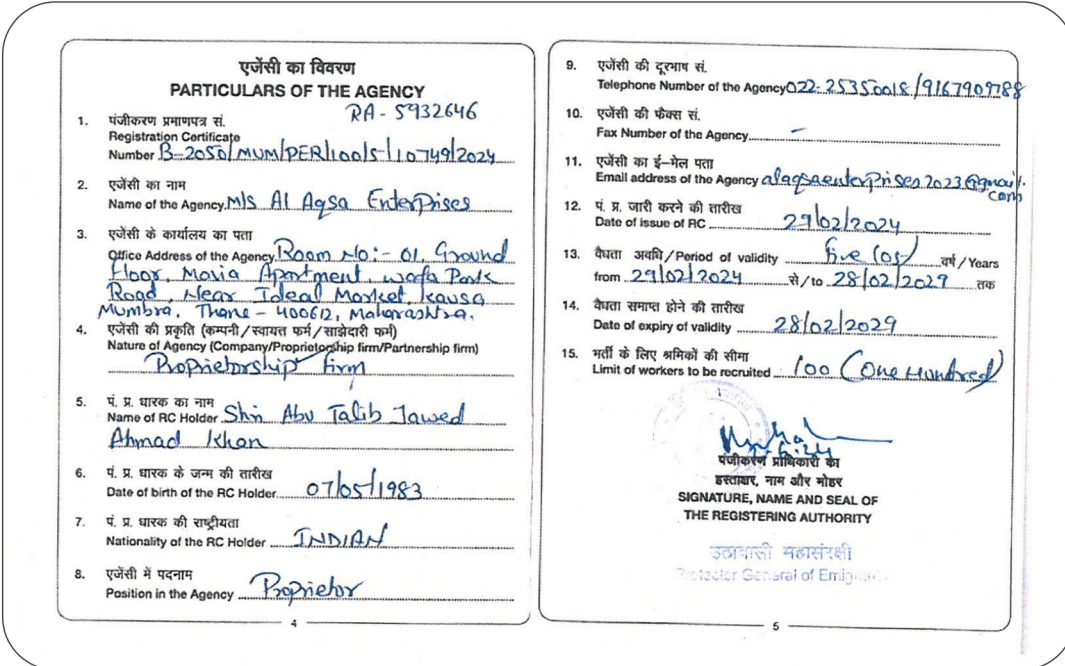 एजेंसी का विवरण
PARTICULARS OF THE AGENCY
RA - 5932646
1. पंजीकरण प्रमाणपत्र सं.
Registration Certificate
Number B-2050/MUM/PER/100/5/10749/2024
2. एजेंसी का नाम
Name of the Agency M/s Al Aqsa Enterprises
3. एजेंसी के कार्यालय का पता
Office Address of the Agency Room No:- 01, Ground
Floor, Maria Apartment, wafa Park
Road, Near Ideal Market, kausa
Mumbra, Thane - 400612, Maharashtra.
4. एजेंसी की प्रकृति (कम्पनी/स्वायत फर्म/साझेदारी फर्म)
Nature of Agency (Company/Proprietorship firm/Partnership firm)
Proprietorship firm
5. पं. प्र. धारक का नाम
Name of RC Holder Shri Abu Talib Jawed
Ahmad Khan
6. पं. प्र. धारक के जन्म की तारीख
Date of birth of the RC Holder 07/05/1983
7. पं. प्र. धारक की राष्ट्रीयता
Nationality of the RC Holder INDIAN
8. एजेंसी में पदनाम
Position in the Agency Proprietor
4
9. एजेंसी की दूरभाष सं.
Telephone Number of the Agency 022-25350018/9167909788
10. एजेंसी की फैक्स सं.
Fax Number of the Agency -
11. एजेंसी का ई-मेल पता
Email address of the Agency alaqsaenterprises2023@gmail.
com
12. पं. प्र. जारी करने की तारीख
Date of issue of RC 29/02/2024
13. वैधता अवधि/Period of validity five (05) वर्ष/Years
from 29/02/2024 से/to 28/02/2029 तक
14. वैधता समाप्त होने की तारीख
Date of expiry of validity 28/02/2029
15. भर्ती के लिए श्रमिकों की सीमा
Limit of workers to be recruited 100 (One Hundred)
पंजीकरण प्राधिकारी का
हस्ताक्षर, नाम और मोहर
SIGNATURE, NAME AND SEAL OF
THE REGISTERING AUTHORITY
उत्प्रवासी महासंरक्षी
Protector General of Emigrants
5